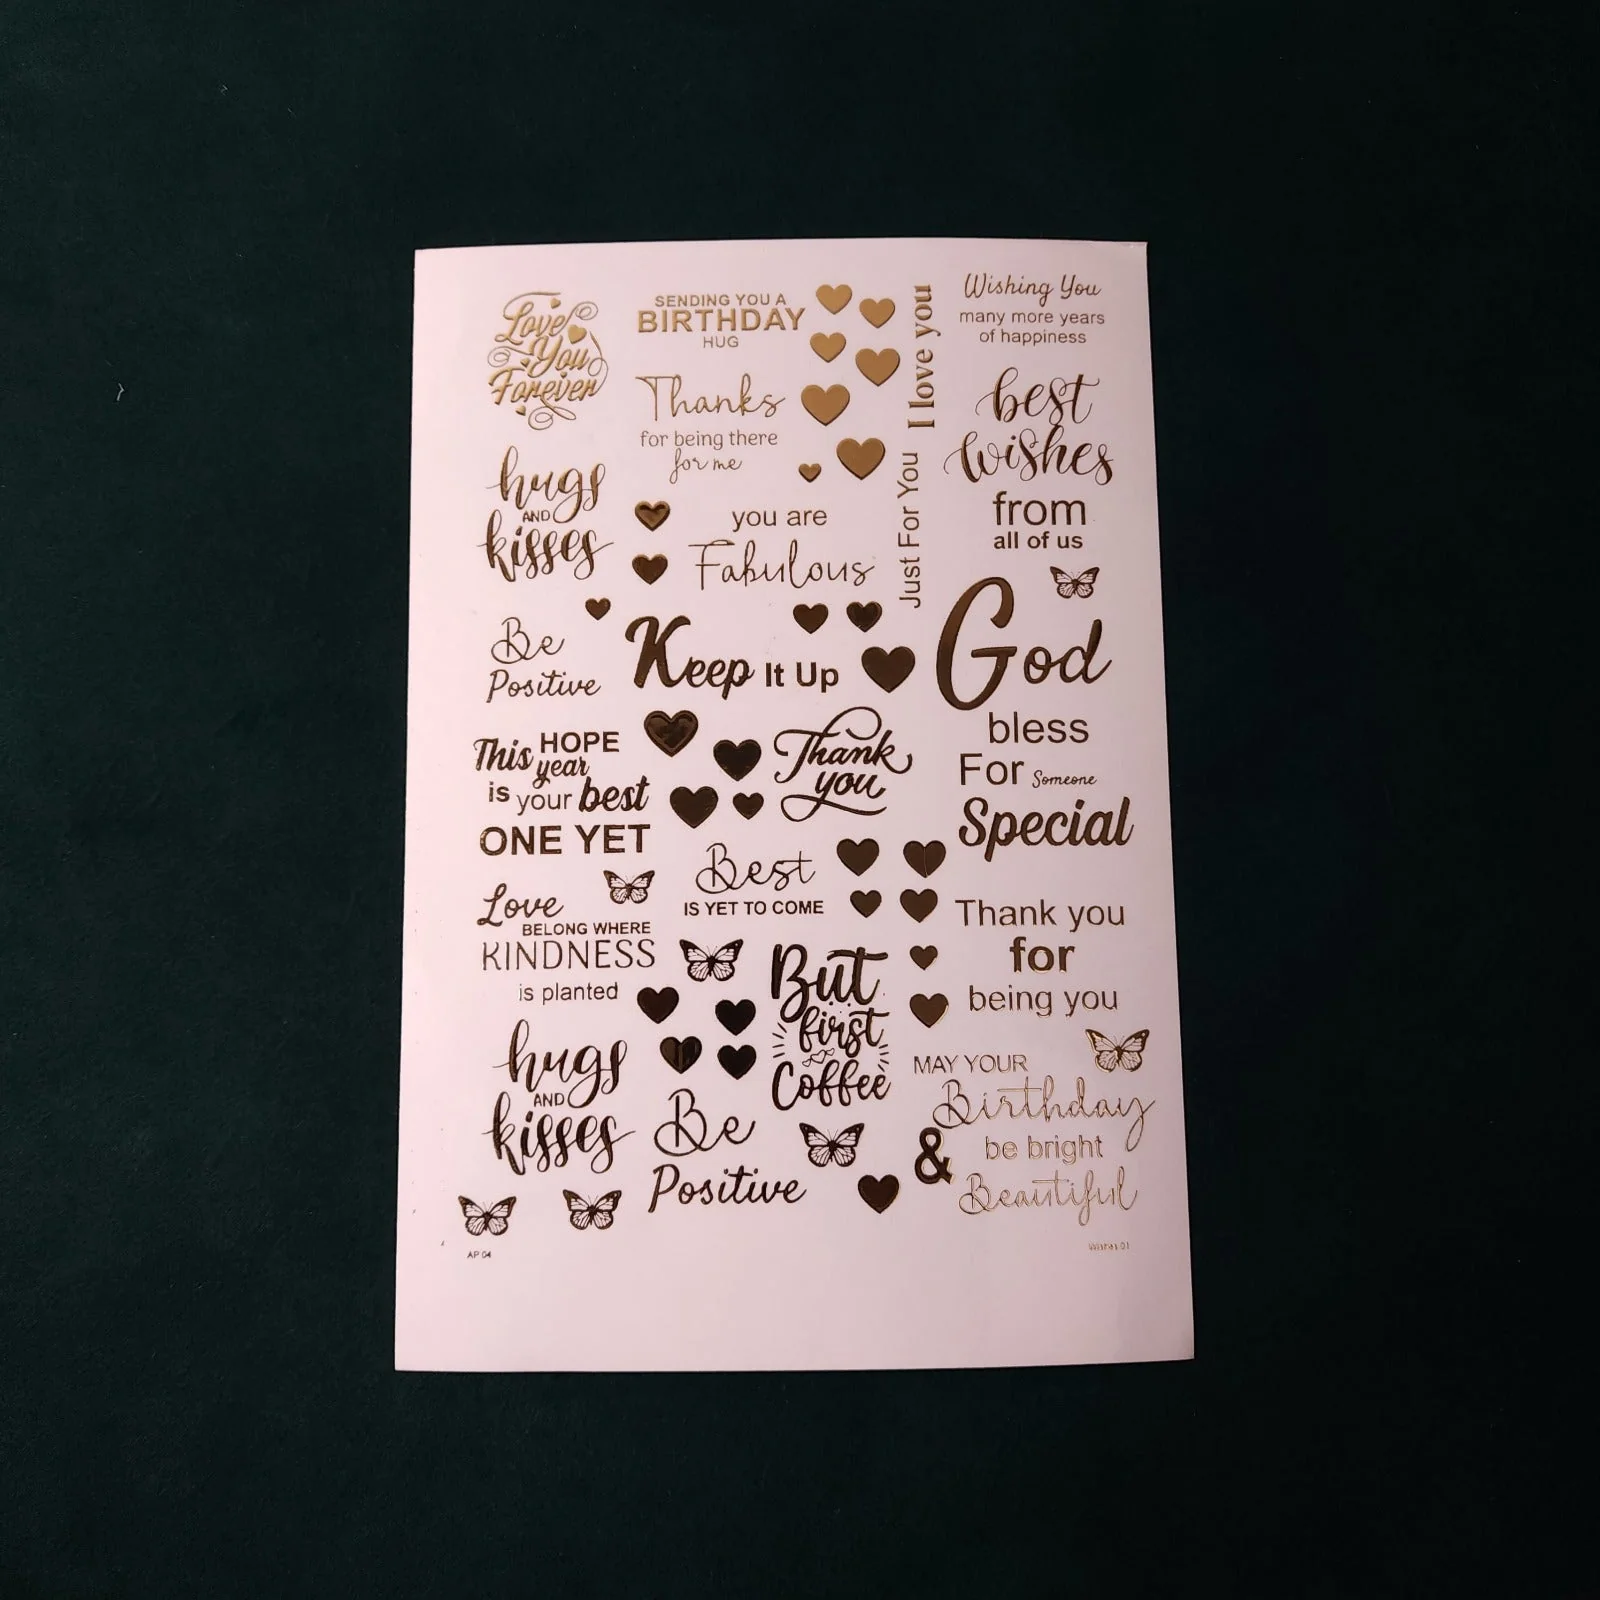 Love
You
Forever
SENDING YOU A
BIRTHDAY
HUG
Thanks
for being there
for me
I love you
Just For You
Wishing You
many more years
of happiness
best
wishes
from
all of us
hugs
AND
kisses
you are
Fabulous
Be
Positive
Keep It Up
God
bless
For Someone
Special
This HOPE
year
is your best
ONE YET
Thank
you
Best
IS YET TO COME
Love
BELONG WHERE
KINDNESS
is planted
But
first
Coffee
Thank you
for
being you
hugs
AND
kisses
Be
Positive
MAY YOUR
Birthday
be bright
&
Beautiful
AP 04
Wishes 01